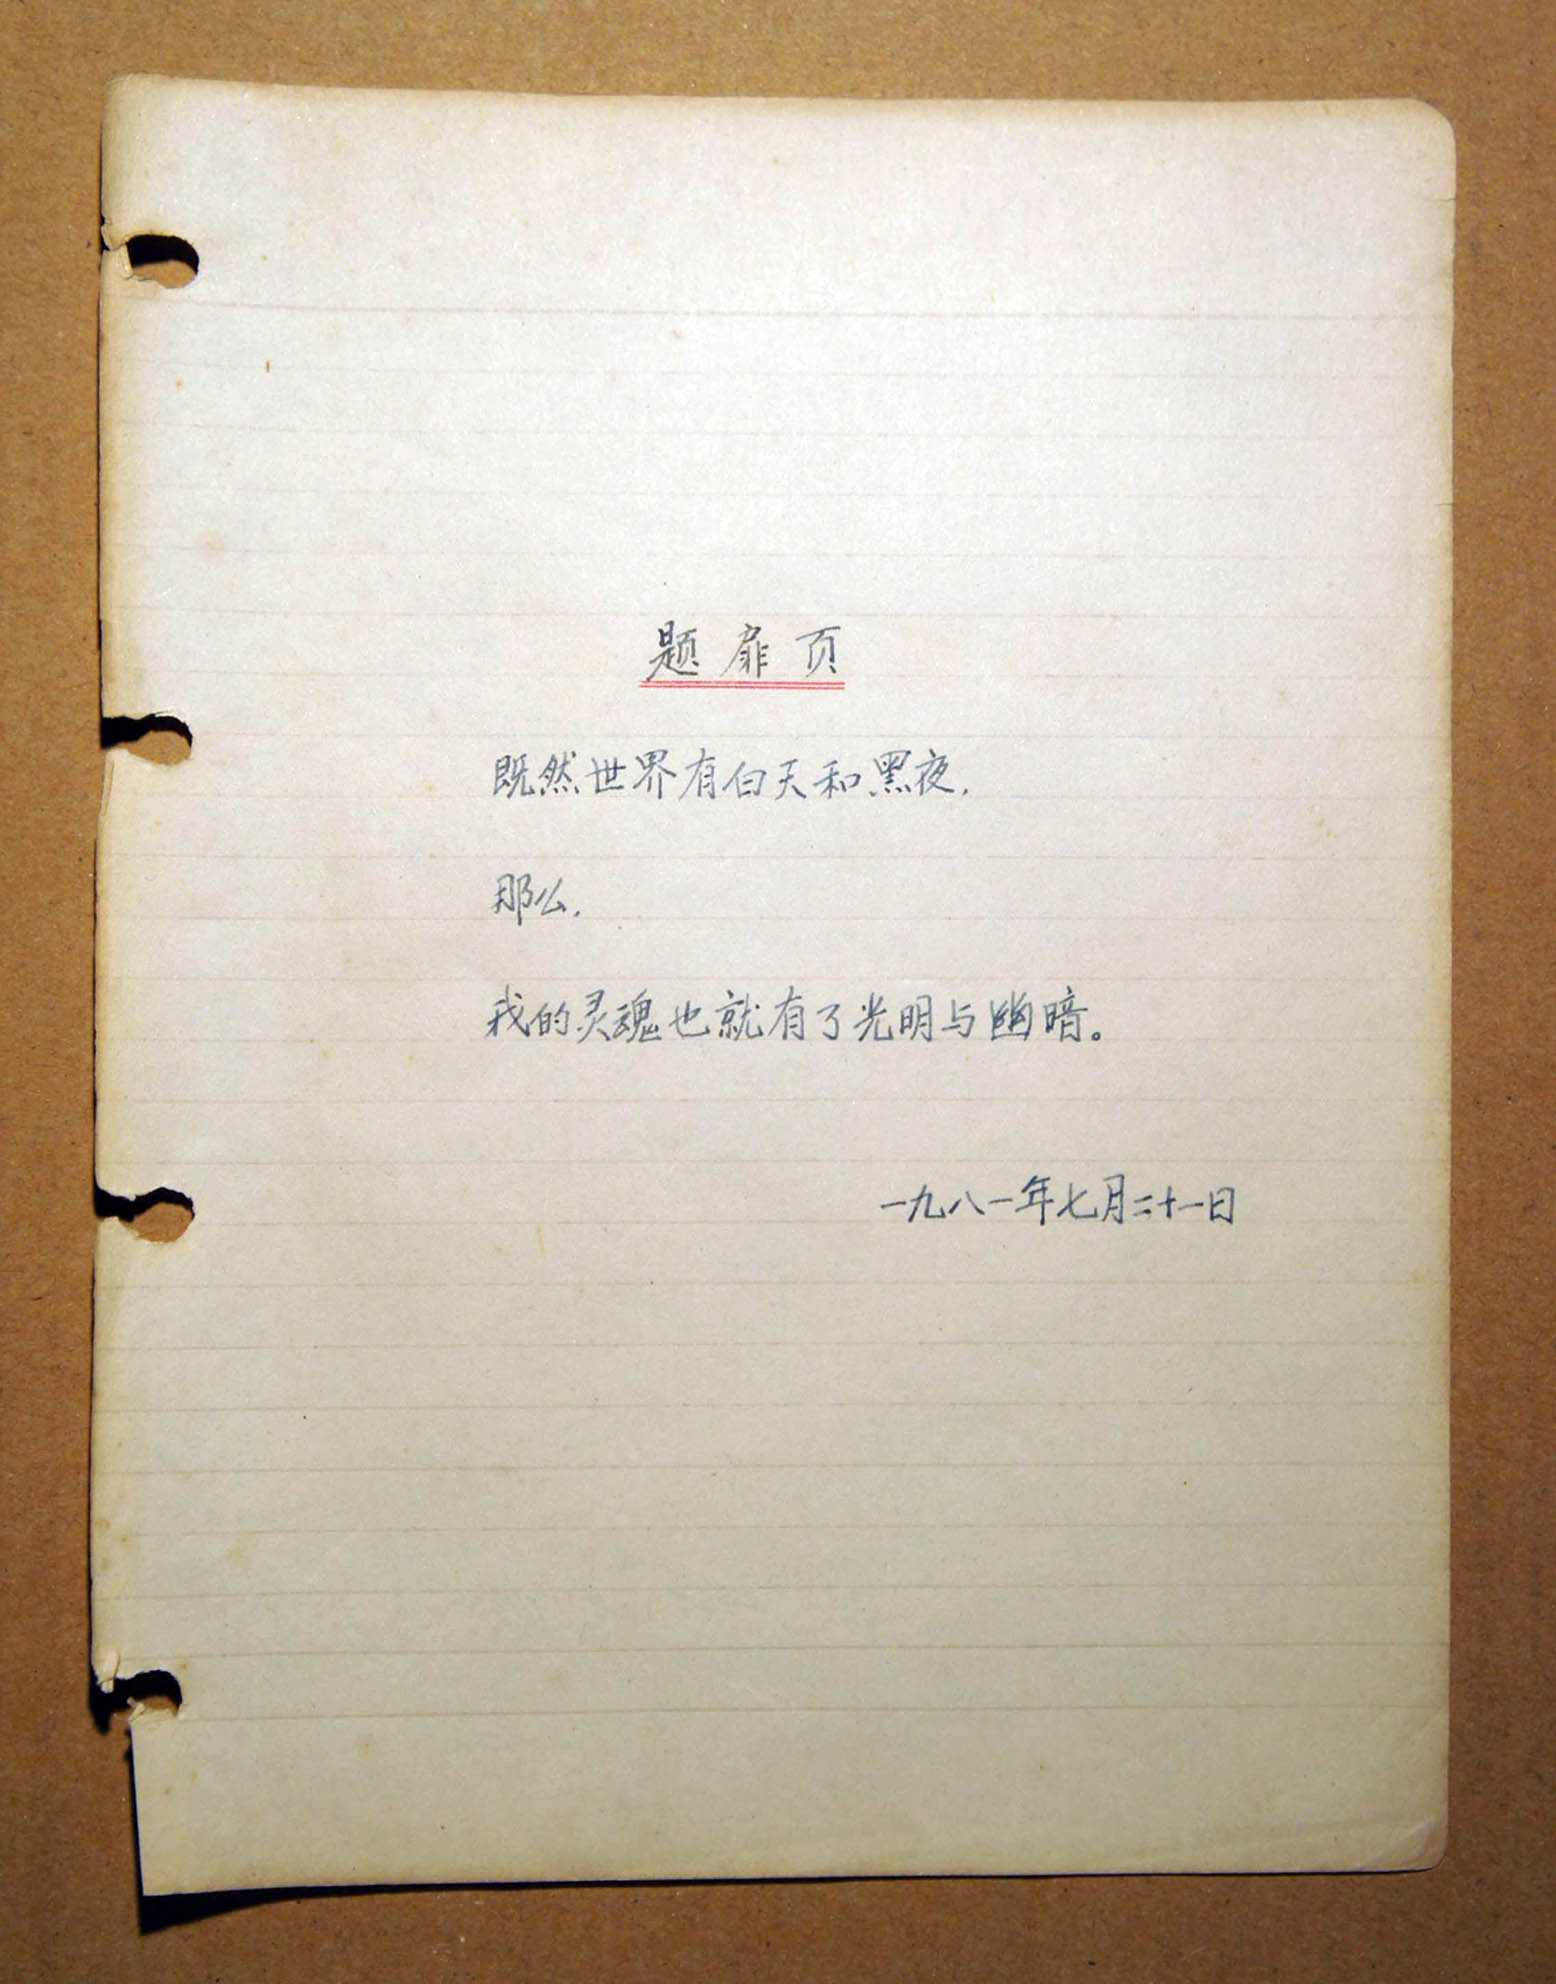 题扉页
既然世界有白天和黑夜,
那么,
我的灵魂也就有了光明与幽暗。
一九八一年七月二十一日